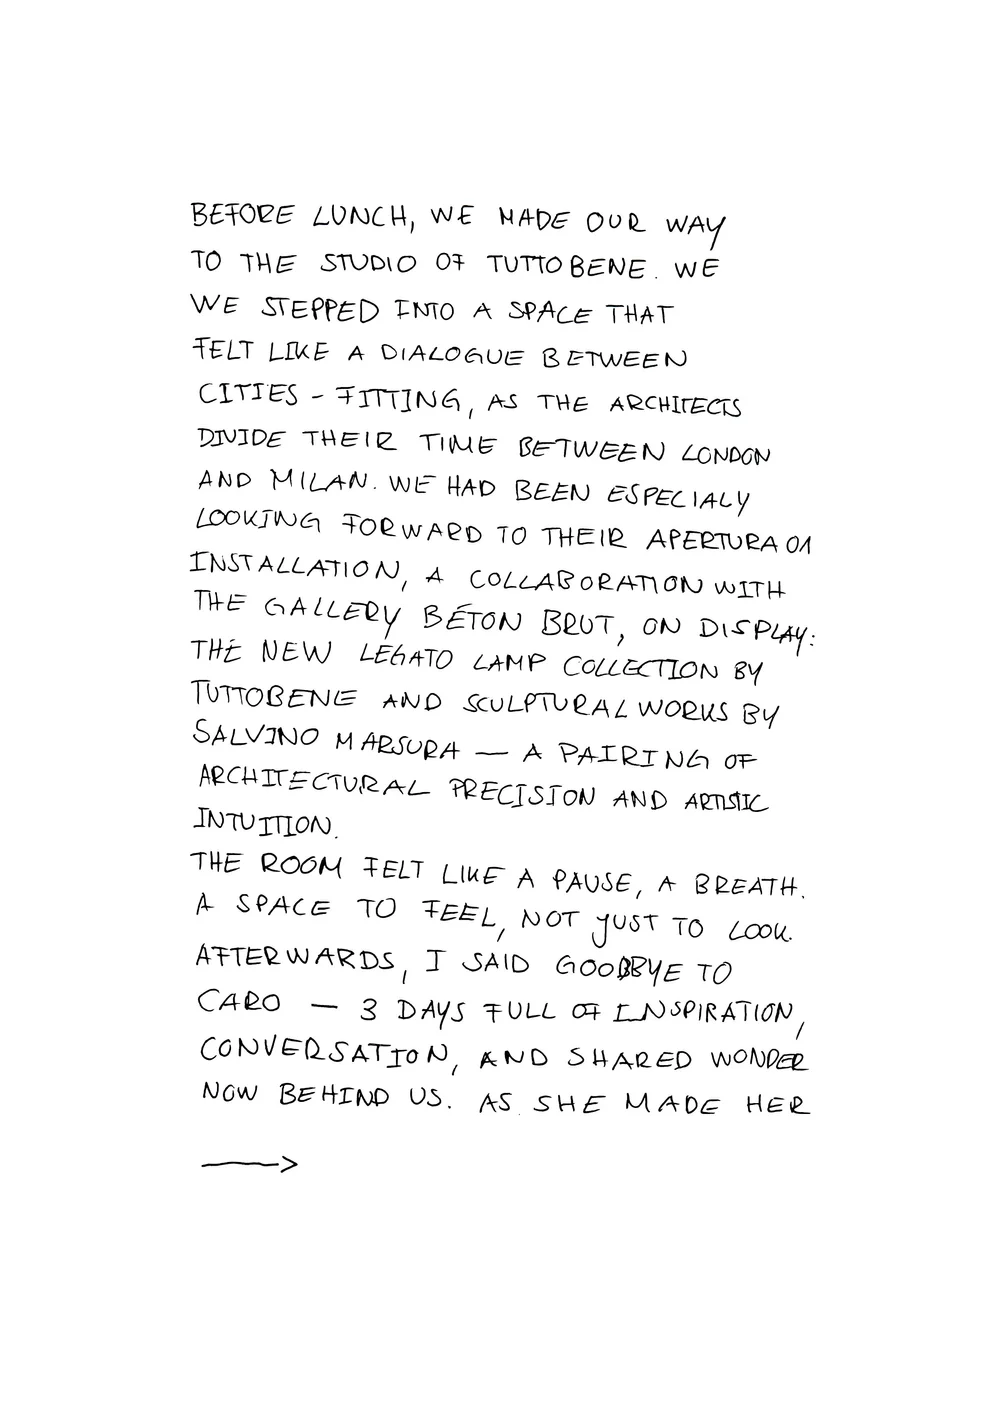 BEFORE LUNCH, WE MADE OUR WAY
TO THE STUDIO OF TUTTOBENE. WE
WE STEPPED INTO A SPACE THAT
FELT LIKE A DIALOGUE BETWEEN
CITIES - FITTING, AS THE ARCHITECTS
DIVIDE THEIR TIME BETWEEN LONDON
AND MILAN. WE HAD BEEN ESPECIALY
LOOKING FORWARD TO THEIR APERTURA 01
INSTALLATION, A COLLABORATION WITH
THE GALLERY BÉTON BRUT, ON DISPLAY:
THE NEW LEGATO LAMP COLLECTION BY
TUTTOBENE AND SCULPTURAL WORKS BY
SALVINO MARSURA — A PAIRING OF
ARCHITECTURAL PRECISION AND ARTISTIC
INTUITION.
THE ROOM FELT LIKE A PAUSE, A BREATH.
A SPACE TO FEEL, NOT JUST TO LOOK.
AFTERWARDS, I SAID GOODBYE TO
CARO — 3 DAYS FULL OF INSPIRATION,
CONVERSATION, AND SHARED WONDER
NOW BEHIND US. AS SHE MADE HER
→